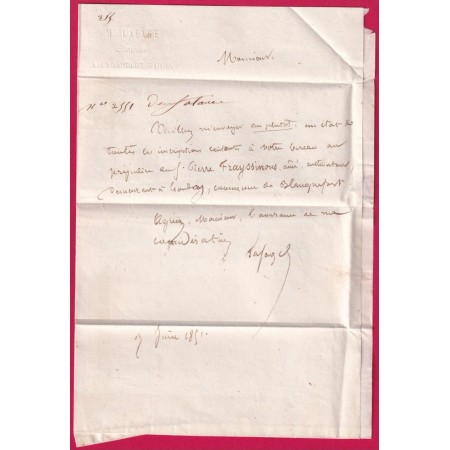 Monsieur,
N° 2551
Veuillez m'envoyer au plutôt, un état de
toutes les inscriptions existants à votre bureau au
préjudice du Sr Pierre Frayssinous, ainé, cultivateur
demeurant à commune de Blanquefort
Agréez, Monsieur, l'assurance de ma
considération
Lafargue
9 Juin 1851.